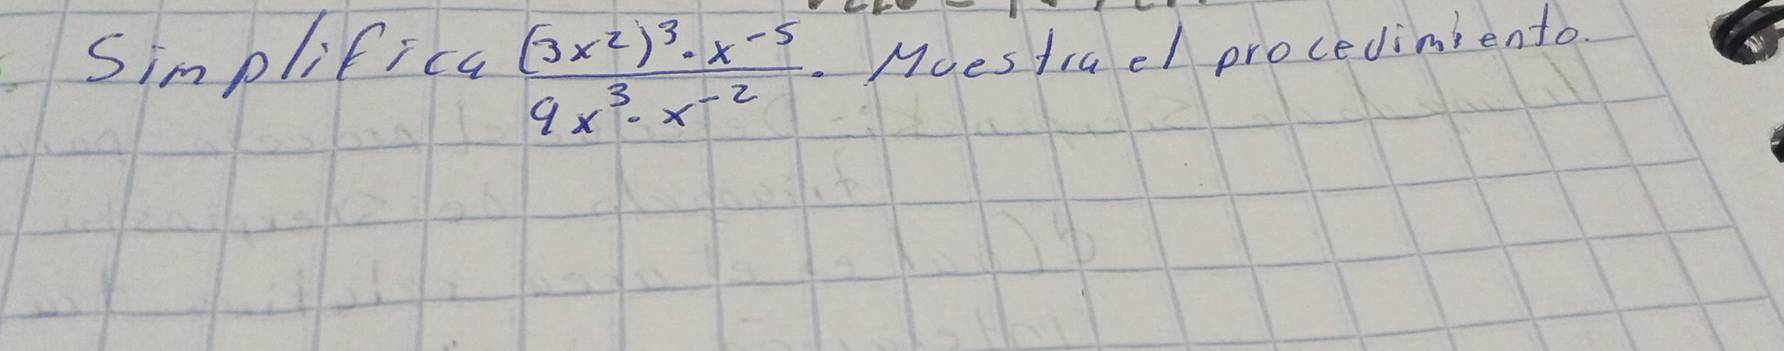 Simplifica \frac{(3x^2)^3 \cdot x^{-5}}{9x^3 \cdot x^{-2}}. Muestra el procedimiento.